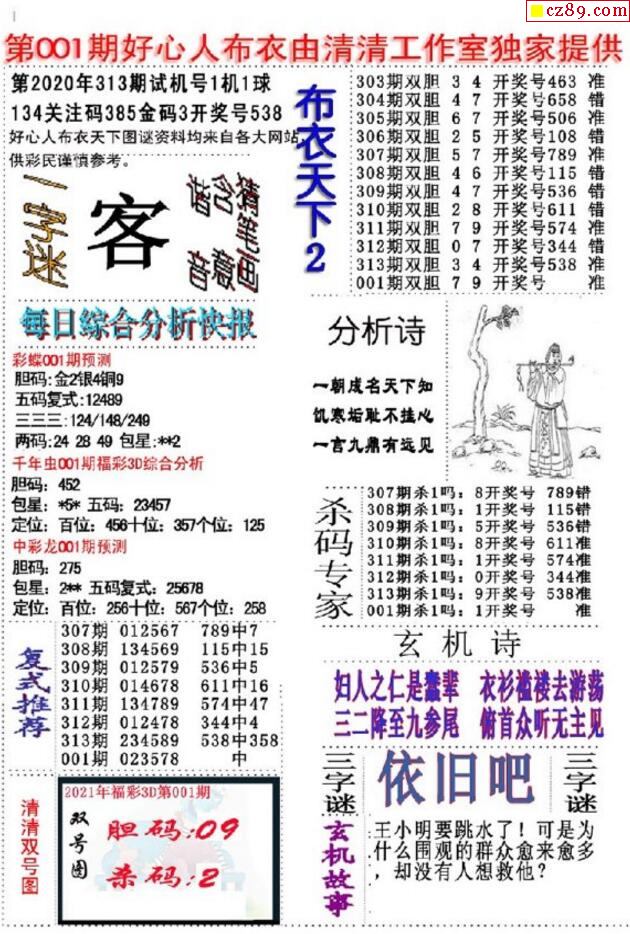 cz89.com
第001期好心人布衣由清清工作室独家提供
第2020年313期试机号1机1球
134关注码385金码3开奖号538
好心人布衣天下图谜资料均来自各大网站,
供彩民谨慎参考。
一字迷
客
猜笔画
含意
谐音
每日综合分析快报
彩蝶001期预测
胆码:金2银4铜9
五码复式:12489
三三三:124/148/249
两码:24 28 49 包星:**2
千年虫001期福彩3D综合分析
胆码: 452
包星: *5* 五码: 23457
定位: 百位: 456十位: 357个位: 125
中彩龙001期预测
胆码: 275
包星: 2** 五码复式: 25678
定位: 百位: 256十位: 567个位: 258
复式推荐
307期 012567 789中7
308期 134569 115中15
309期 012579 536中5
310期 014678 611中16
311期 134789 574中47
312期 012478 344中4
313期 234589 538中358
001期 023578 中
清清双号图
2021年福彩3D第001期
双号图
胆码:09
杀码:2
布衣天下2
303期双胆 3 4 开奖号463 准
304期双胆 4 7 开奖号658 错
305期双胆 6 7 开奖号506 准
306期双胆 2 5 开奖号108 错
307期双胆 5 7 开奖号789 准
308期双胆 4 6 开奖号115 错
309期双胆 4 7 开奖号536 错
310期双胆 2 8 开奖号611 错
311期双胆 7 9 开奖号574 准
312期双胆 0 7 开奖号344 错
313期双胆 3 4 开奖号538 准
001期双胆 7 9 开奖号 准
分析诗
一朝成名天下知
饥寒垢耻不挂心
一言九鼎有远见
杀码专家
307期杀1吗: 8开奖号 789错
308期杀1吗: 1开奖号 115错
309期杀1吗: 5开奖号 536错
310期杀1吗: 8开奖号 611准
311期杀1吗: 1开奖号 574准
312期杀1吗: 0开奖号 344准
313期杀1吗: 9开奖号 538准
001期杀1吗: 1开奖号 准
玄机诗
妇人之仁是蠢辈 衣衫褴褛去游荡
三二降至九参尾 俯首众听无主见
三字谜
依旧吧
三字谜
玄机故事
王小明要跳水了！可是为
什么围观的群众愈来愈多
，却没有人想救他？